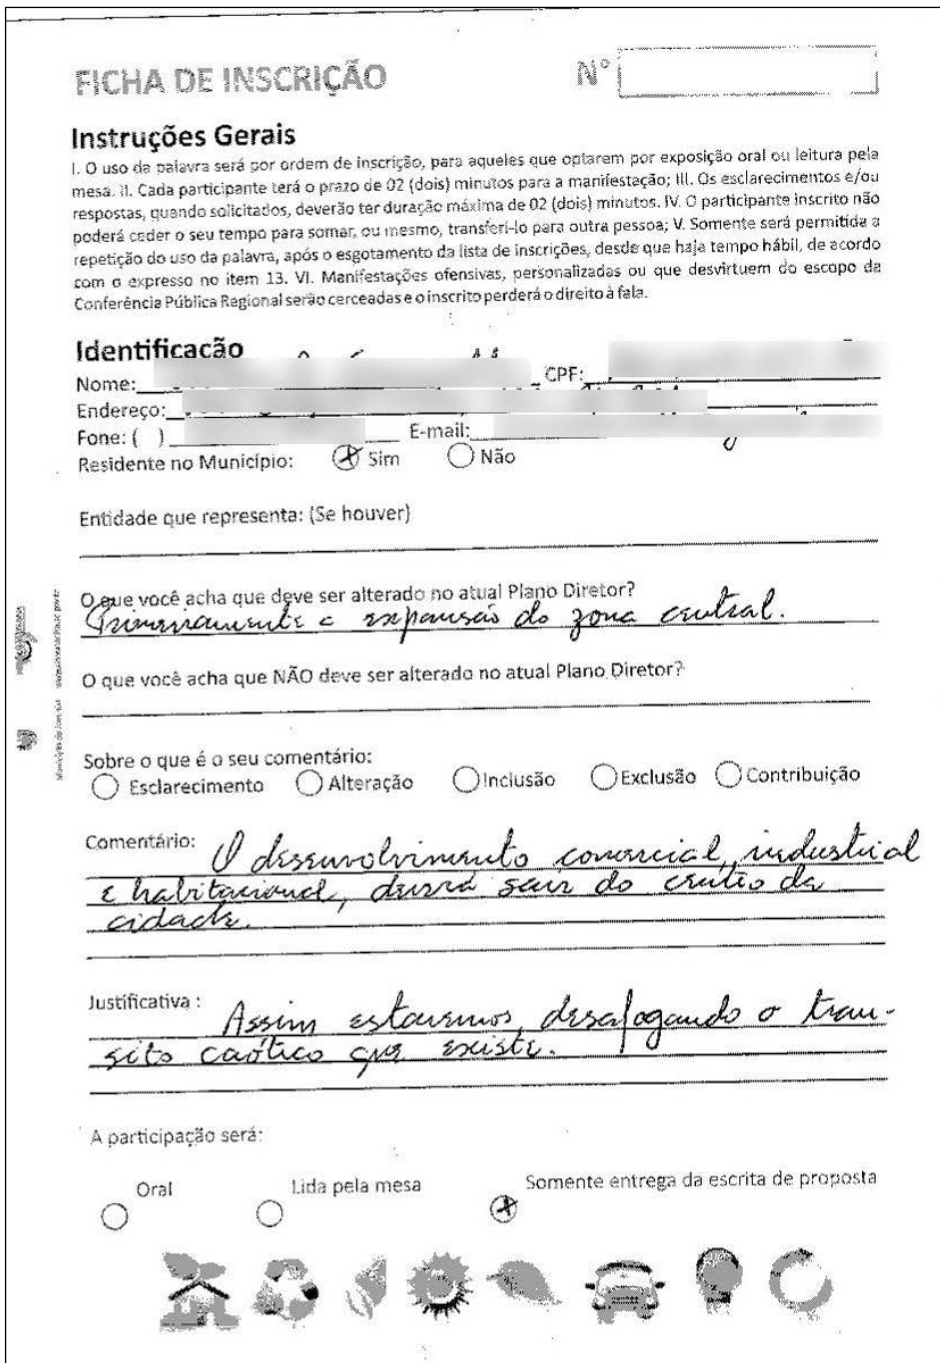 FICHA DE INSCRIÇÃO
Nº
Instruções Gerais
I. O uso da palavra será por ordem de inscrição, para aqueles que optarem por exposição oral ou leitura pela
mesa. II. Cada participante terá o prazo de 02 (dois) minutos para a manifestação; III. Os esclarecimentos e/ou
respostas, quando solicitados, deverão ter duração máxima de 02 (dois) minutos. IV. O participante inscrito não
poderá ceder o seu tempo para somar, ou mesmo, transferi-lo para outra pessoa; V. Somente será permitida a
repetição do uso da palavra, após o esgotamento da lista de inscrições, desde que haja tempo hábil, de acordo
com o expresso no item 13. VI. Manifestações ofensivas, personalizadas ou que desvirtuem do escopo da
Conferência Pública Regional serão cerceadas e o inscrito perderá o direito à fala.
Identificação
Nome: CPF:
Endereço:
Fone: ( ) E-mail:
Residente no Município: Sim Não
Entidade que representa: (Se houver)
O que você acha que deve ser alterado no atual Plano Diretor?
Primeiramente a expansão do zona central.
O que você acha que NÃO deve ser alterado no atual Plano Diretor?
Sobre o que é o seu comentário:
Esclarecimento Alteração Inclusão Exclusão Contribuição
Comentário: O desenvolvimento comercial, industrial
e habitacional, deverá sair do centro da
cidade.
Justificativa : Assim estaremos, desafogando o tran-
sito caótico que existe.
A participação será:
Oral Lida pela mesa Somente entrega da escrita de proposta